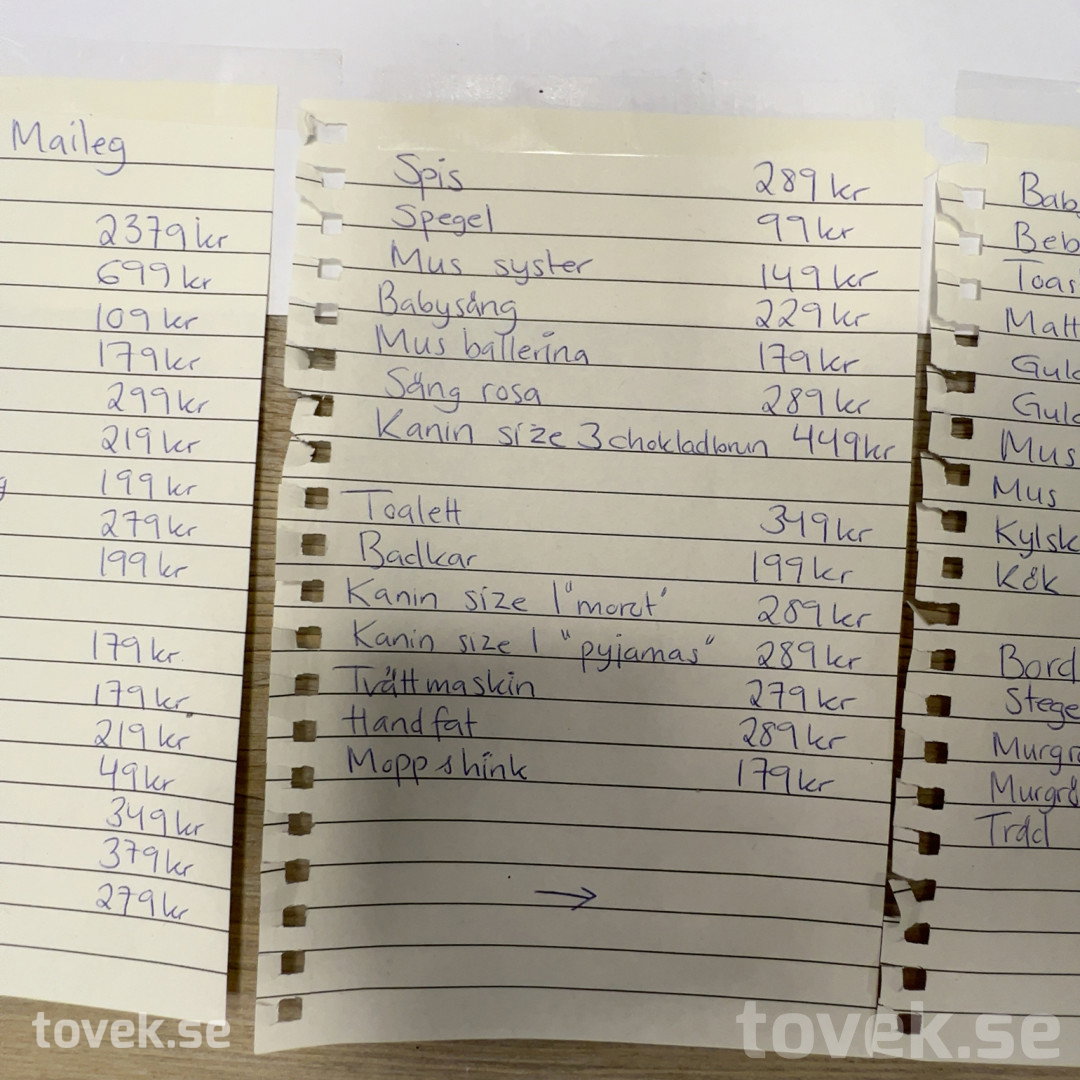 Maileg
2379 kr
699 kr
109 kr
179 kr
299 kr
219 kr
199 kr
279 kr
199 kr
179 kr.
179 kr.
219 kr
49 kr
349 kr
379 kr
279 kr
Spis 289 kr
Spegel 99 kr
Mus syster 149 kr
Babysäng 229 kr
Mus ballerina 179 kr
Säng rosa 289 kr
Kanin size 3 chokladbrun 449 kr
Toalett 349 kr
Badkar 199 kr
Kanin size 1 289 kr
Kanin size 1 "pyjamas" 289 kr
Tvättmaskin 279 kr
Handfat 289 kr
Moppshink 179 kr
→
Bab
Beb
Toas
Matt
Gulc
Gulc
Mus
Mus
Kylsk
Kök
Bord
Stege
Murgr
Murgrö
tovek.se
tovek.se